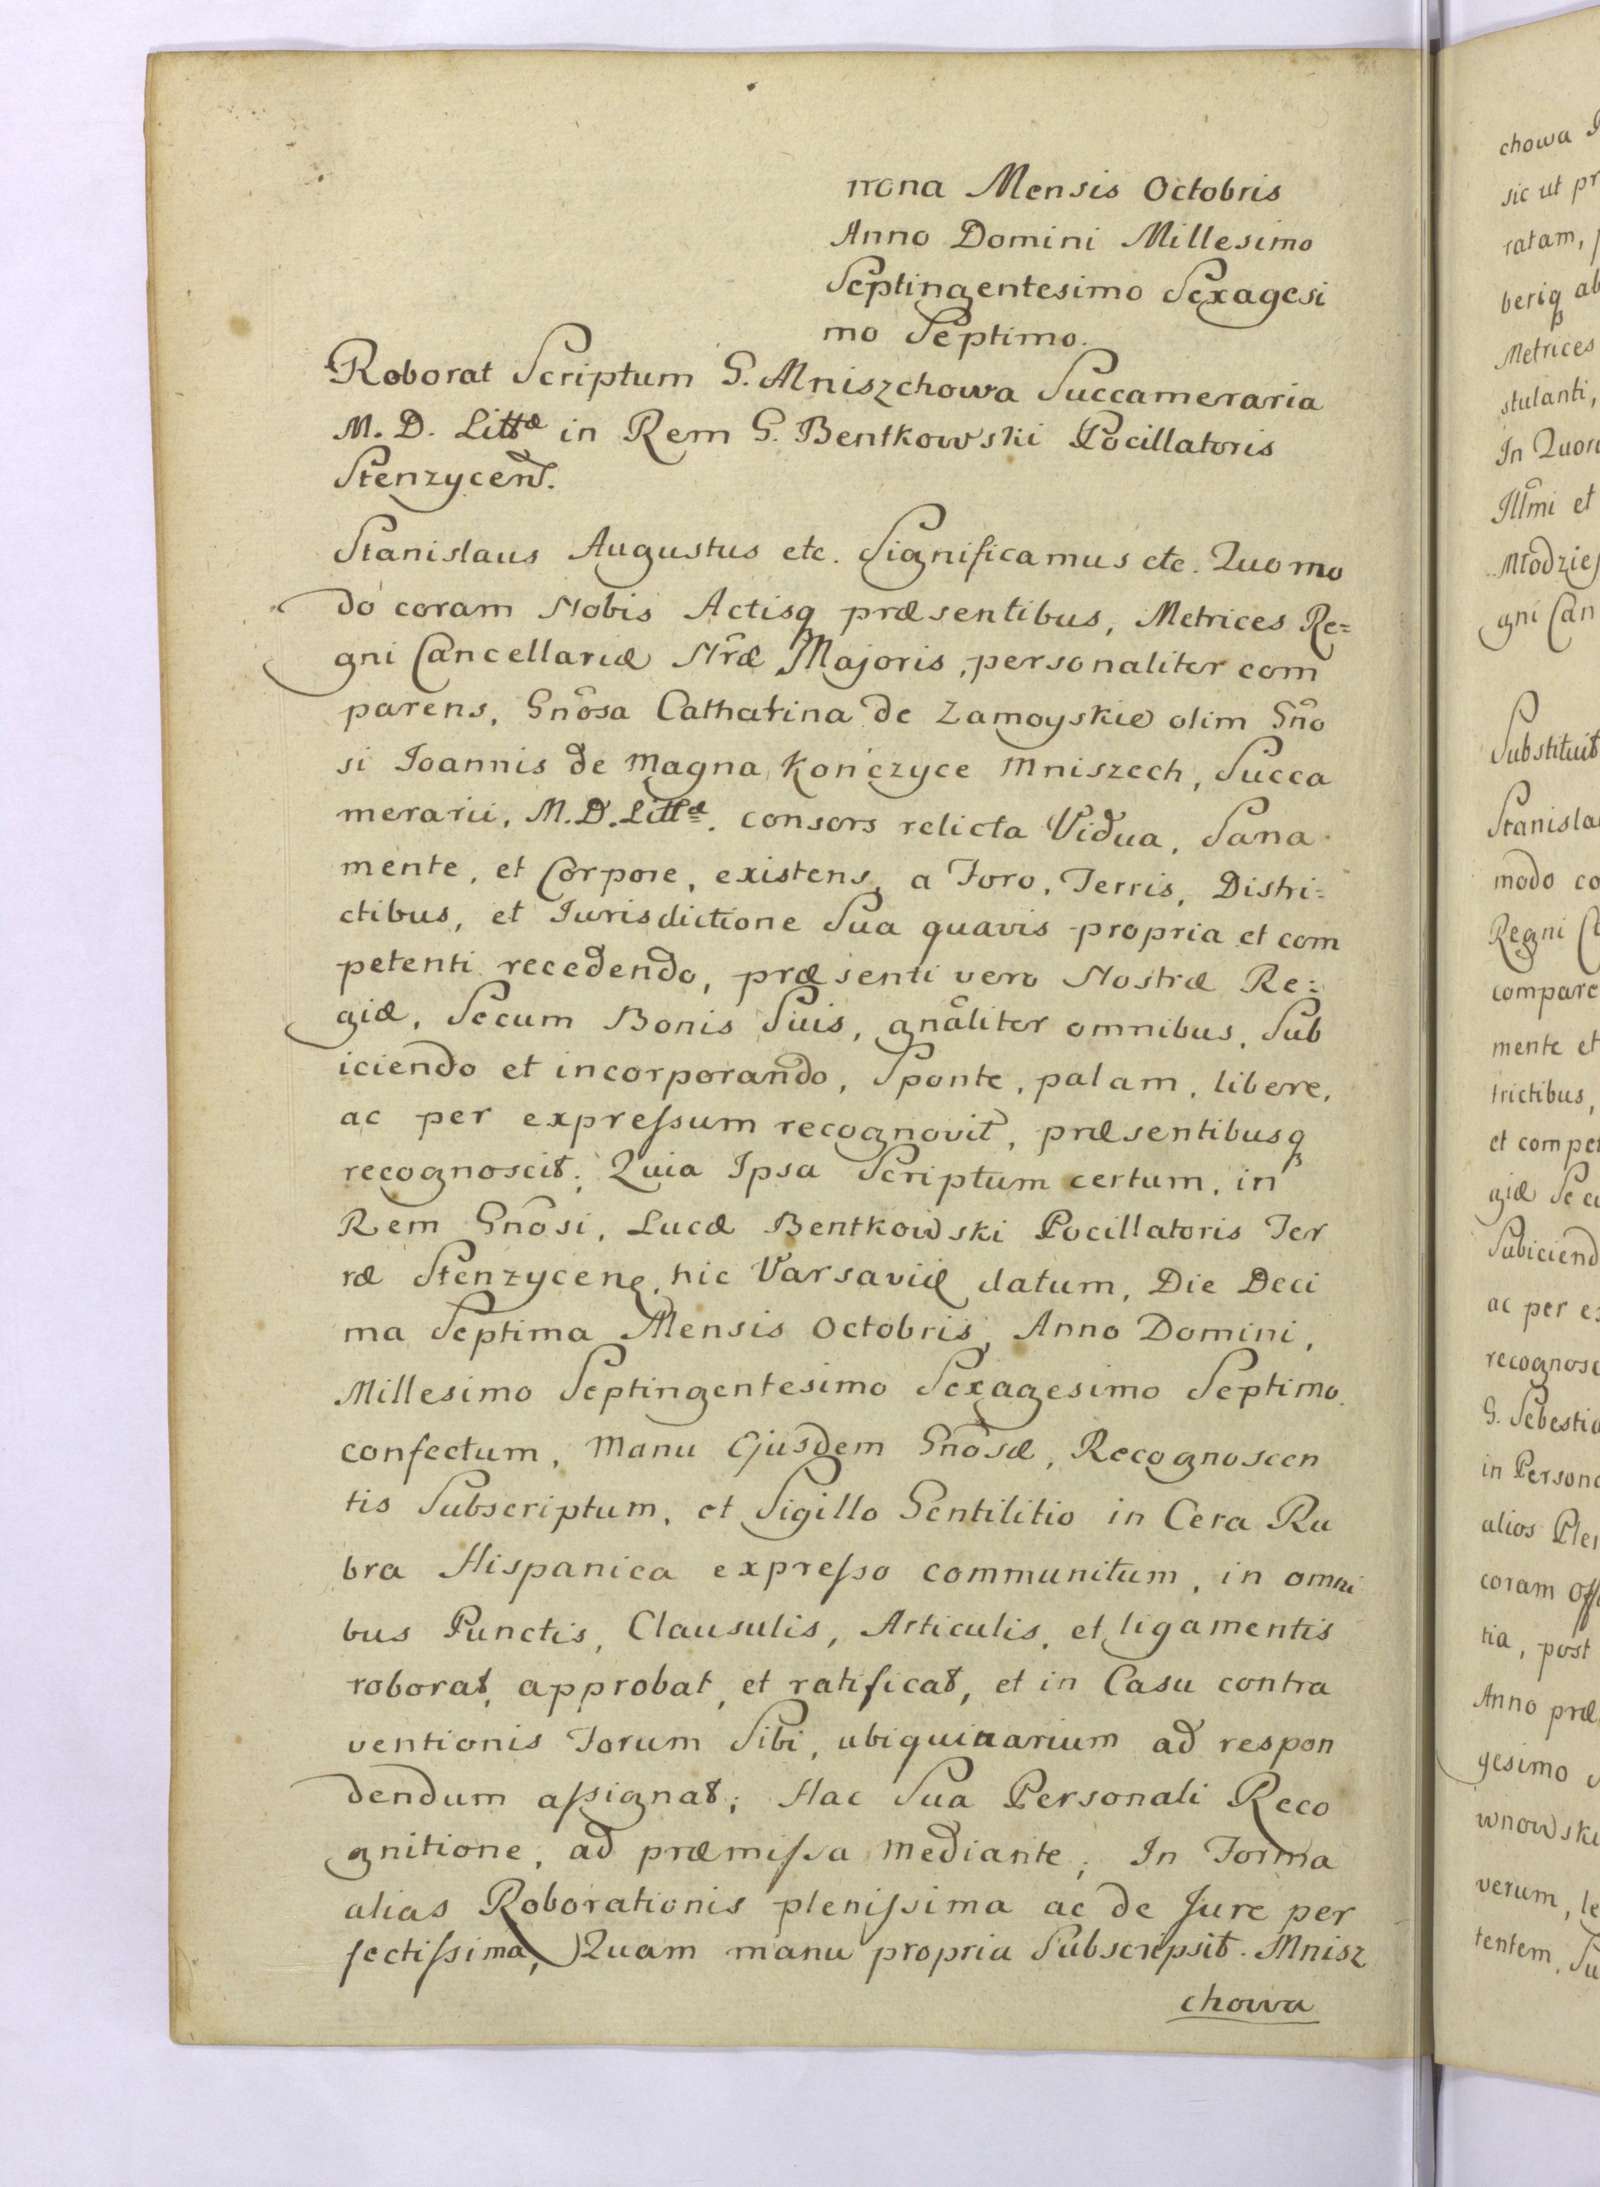 nona Mensis Octobris
Anno Domini Millesimo
Septingentesimo Sexagesi
mo Septimo.
Roborat Scriptum G. Mniszchowa Succameraria
M. D. Littæ in Rem G. Bentkowski Pocillatoris
Stenzycens.
Stanislaus Augustus etc. Significamus etc. Quomo
do coram Nobis Actisq præsentibus, Metrices Re=
gni Cancellariæ Nræ Majoris, personaliter com
parens, Gnosa Catharina de Zamoyskie olim Gno
si Joannis de Magna Kończyce Mniszech, Succa
merarii, M. D. Littæ. consors relicta Vidua, Sana
mente, et Corpore, existens, a Foro, Terris, Distri=
ctibus, et Jurisdictione Sua quavis propria et com
petenti recedendo, præsenti vero Nostræ Re=
giæ, Secum Bonis Suis, gnaliter omnibus, Sub
iciendo et incorporando, Sponte, palam, libere,
ac per expreſsum recognovit, præsentibusq
recognoscit; Quia Ipsa Scriptum certum, in
Rem Gnosi, Lucæ Bentkowski Pocillatoris Ter
ræ Stenzycen, hic Varsaviæ datum, Die Deci
ma Septima Mensis Octobris, Anno Domini,
Millesimo Septingentesimo Sexagesimo Septimo.
confectum, Manu Ejusdem Gnosæ, Recognoscen
tis Subscriptum, et Sigillo Gentilitio in Cera Ru
bra Hispanica expreſso communitum, in omni
bus Punctis, Clausulis, Articulis, et ligamentis
roborat, approbat, et ratificat, et in Casu contra
ventionis Forum Sibi, ubiquinarium ad respon
dendum aſsignat; Hac Sua Personali Reco
gnitione, ad præmiſsa mediante; In Forma
alias Roborationis pleniſsima ac de Jure per
fectiſsima, Quam manu propria Subscripsit. Mnisz
chowa
chowa
sic ut pr
ratam,
beriq ab
Metrices
stulanti,
In Quor
Illmi et
Młodzie
gni Can
Substituit
Stanisla
modo co
Regni C
compare
mente et
trictibus,
et compe
giæ Secu
Subiciend
ac per e
recognosc
G. Sebestia
in Persona
alios Ple
coram Off
tia, post
Anno præ
gesimo
wnowski
verum, le
tentem, Su